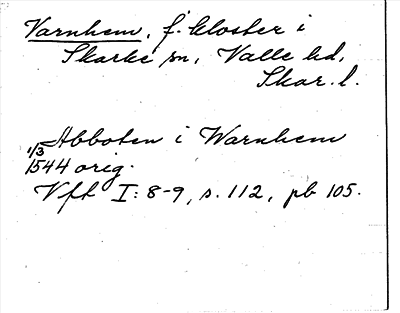 Varnhem, f. kloster i
Skarke sn, Valle hd,
Skar. l.
Abboten i Warnhem
1/3
1544 orig.
Vft I: 8-9, s. 112, pb 105.